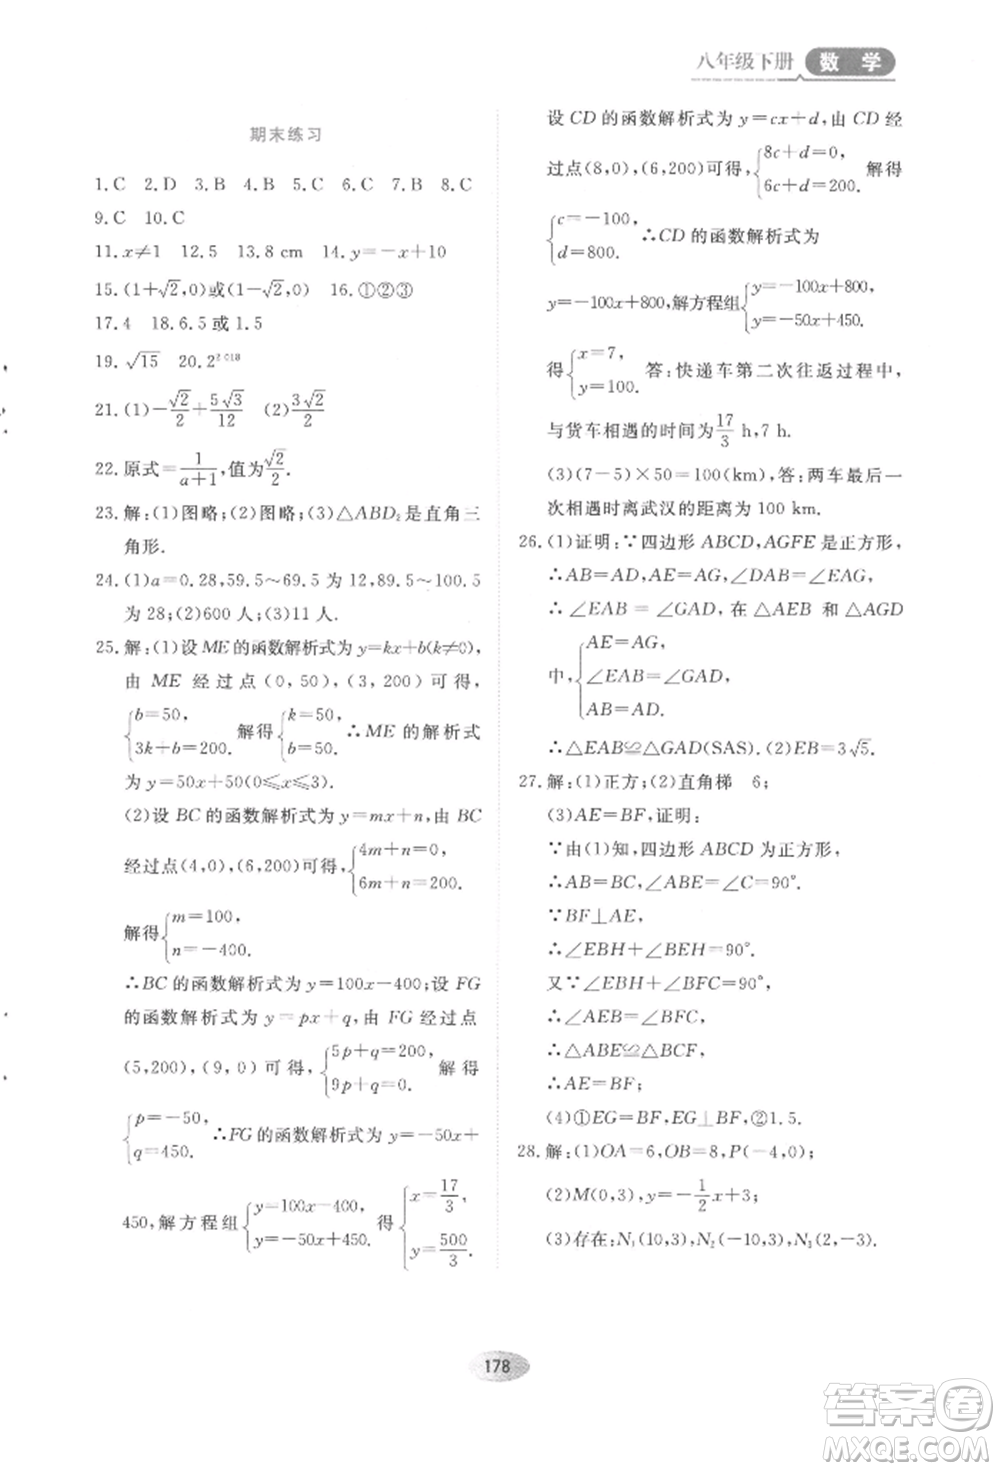 八年级下册 数学
期末练习
1.C 2.D 3.B 4.B 5.C 6.C 7.B 8.C
9.C 10.C
11.x≠1 12.5 13.8 cm 14.y=-x+10
15.(1+√2,0)或(1-√2,0) 16.①②③
17.4 18.6.5或1.5
19.√15 20.2^2018
21.(1)-√2/2+5√3/12 (2)3√2/2
22.原式=1/(a+1),值为√2/2.
23.解:(1)图略;(2)图略;(3)△ABD₂是直角三
角形.
24.(1)a=0.28,59.5~69.5为12,89.5~100.5
为28;(2)600人;(3)11人.
25.解:(1)设ME的函数解析式为y=kx+b(k≠0),
由ME经过点(0,50),(3,200)可得,
{b=50, 3k+b=200. 解得{k=50, b=50. ∴ME的解析式
为y=50x+50(0≤x≤3).
(2)设BC的函数解析式为y=mx+n,由BC
经过点(4,0),(6,200)可得,{4m+n=0, 6m+n=200.
解得{m=100, n=-400.
∴BC的函数解析式为y=100x-400;设FG
的函数解析式为y=px+q,由FG经过点
(5,200),(9,0)可得,{5p+q=200, 9p+q=0. 解得
{p=-50, q=450. ∴FG的函数解析式为y=-50x+
450,解方程组{y=100x-400, y=-50x+450. 得{x=17/3, y=500/3.
设CD的函数解析式为y=cx+d,由CD经
过点(8,0),(6,200)可得,{8c+d=0, 6c+d=200. 解得
{c=-100, d=800. ∴CD的函数解析式为
y=-100x+800,解方程组{y=-100x+800, y=-50x+450.
得{x=7, y=100. 答:快递车第二次往返过程中,
与货车相遇的时间为17/3 h,7 h.
(3)(7-5)×50=100(km),答:两车最后一
次相遇时离武汉的距离为100 km.
26.(1)证明:∵四边形ABCD,AGFE是正方形,
∴AB=AD,AE=AG,∠DAB=∠EAG,
∴∠EAB=∠GAD,在△AEB和△AGD
中,{AE=AG, ∠EAB=∠GAD, AB=AD.
∴△EAB≌△GAD(SAS).(2)EB=3√5.
27.解:(1)正方;(2)直角梯 6;
(3)AE=BF,证明:
∵由(1)知,四边形ABCD为正方形,
∴AB=BC,∠ABE=∠C=90°.
∵BF⊥AE,
∴∠EBH+∠BEH=90°.
又∵∠EBH+∠BFC=90°,
∴∠AEB=∠BFC,
∴△ABE≌△BCF,
∴AE=BF;
(4)①EG=BF,EG⊥BF,②1.5.
28.解:(1)OA=6,OB=8,P(-4,0);
(2)M(0,3),y=-1/2x+3;
(3)存在;N₁(10,3),N₂(-10,3),N₃(2,-3).
178
答案圈
MXQE.COM